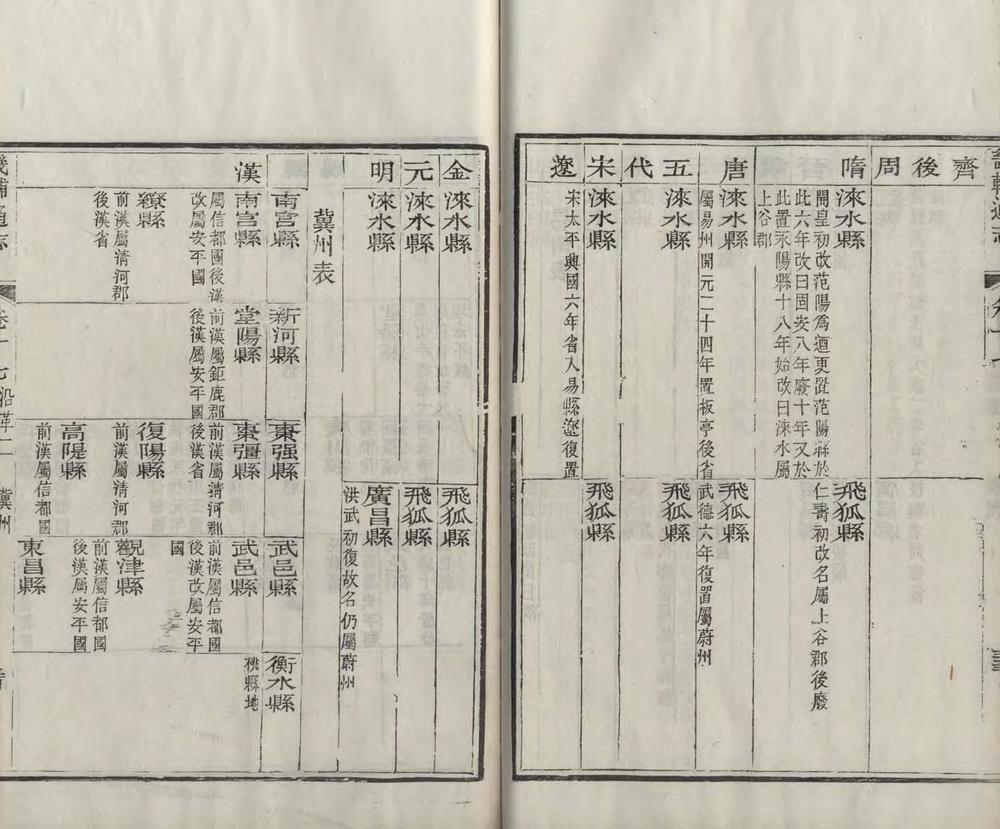 齊
後
周
隋
淶水縣
開皇初改范陽爲遒更趾范陽縣於
此六年改曰固安八年廢十年又於
此置永陽縣十八年始改曰淶水屬
上谷郡
飛狐縣
仁壽初改名屬上谷郡後廢
唐
淶水縣
屬易州開元二十四年置板亭後省
飛狐縣
武德六年復置屬蔚州
五
代
淶水縣
飛狐縣
宋
淶水縣
飛狐縣
遼
宋太平興國六年省入易縣遼復置
金
淶水縣
飛狐縣
元
淶水縣
飛狐縣
明
淶水縣
廣昌縣
洪武初復故名仍屬蔚州
冀州表
南宮縣
新河縣
棗强縣
武邑縣
衡水縣
漢
南宮縣
屬信都國後漢
改屬安平國
堂陽縣
前漢屬鉅鹿郡
後漢屬安平國
棗彊縣
前漢屬清河郡
後漢省
武邑縣
前漢屬信都國
後漢改屬安平
國
桃縣地
繚縣
前漢屬清河郡
後漢省
復陽縣
前漢屬清河郡
觀津縣
前漢屬信都國
後漢屬安平國
高隄縣
前漢屬信都國
東昌縣
畿輔通志
卷十七 沿革二
冀州